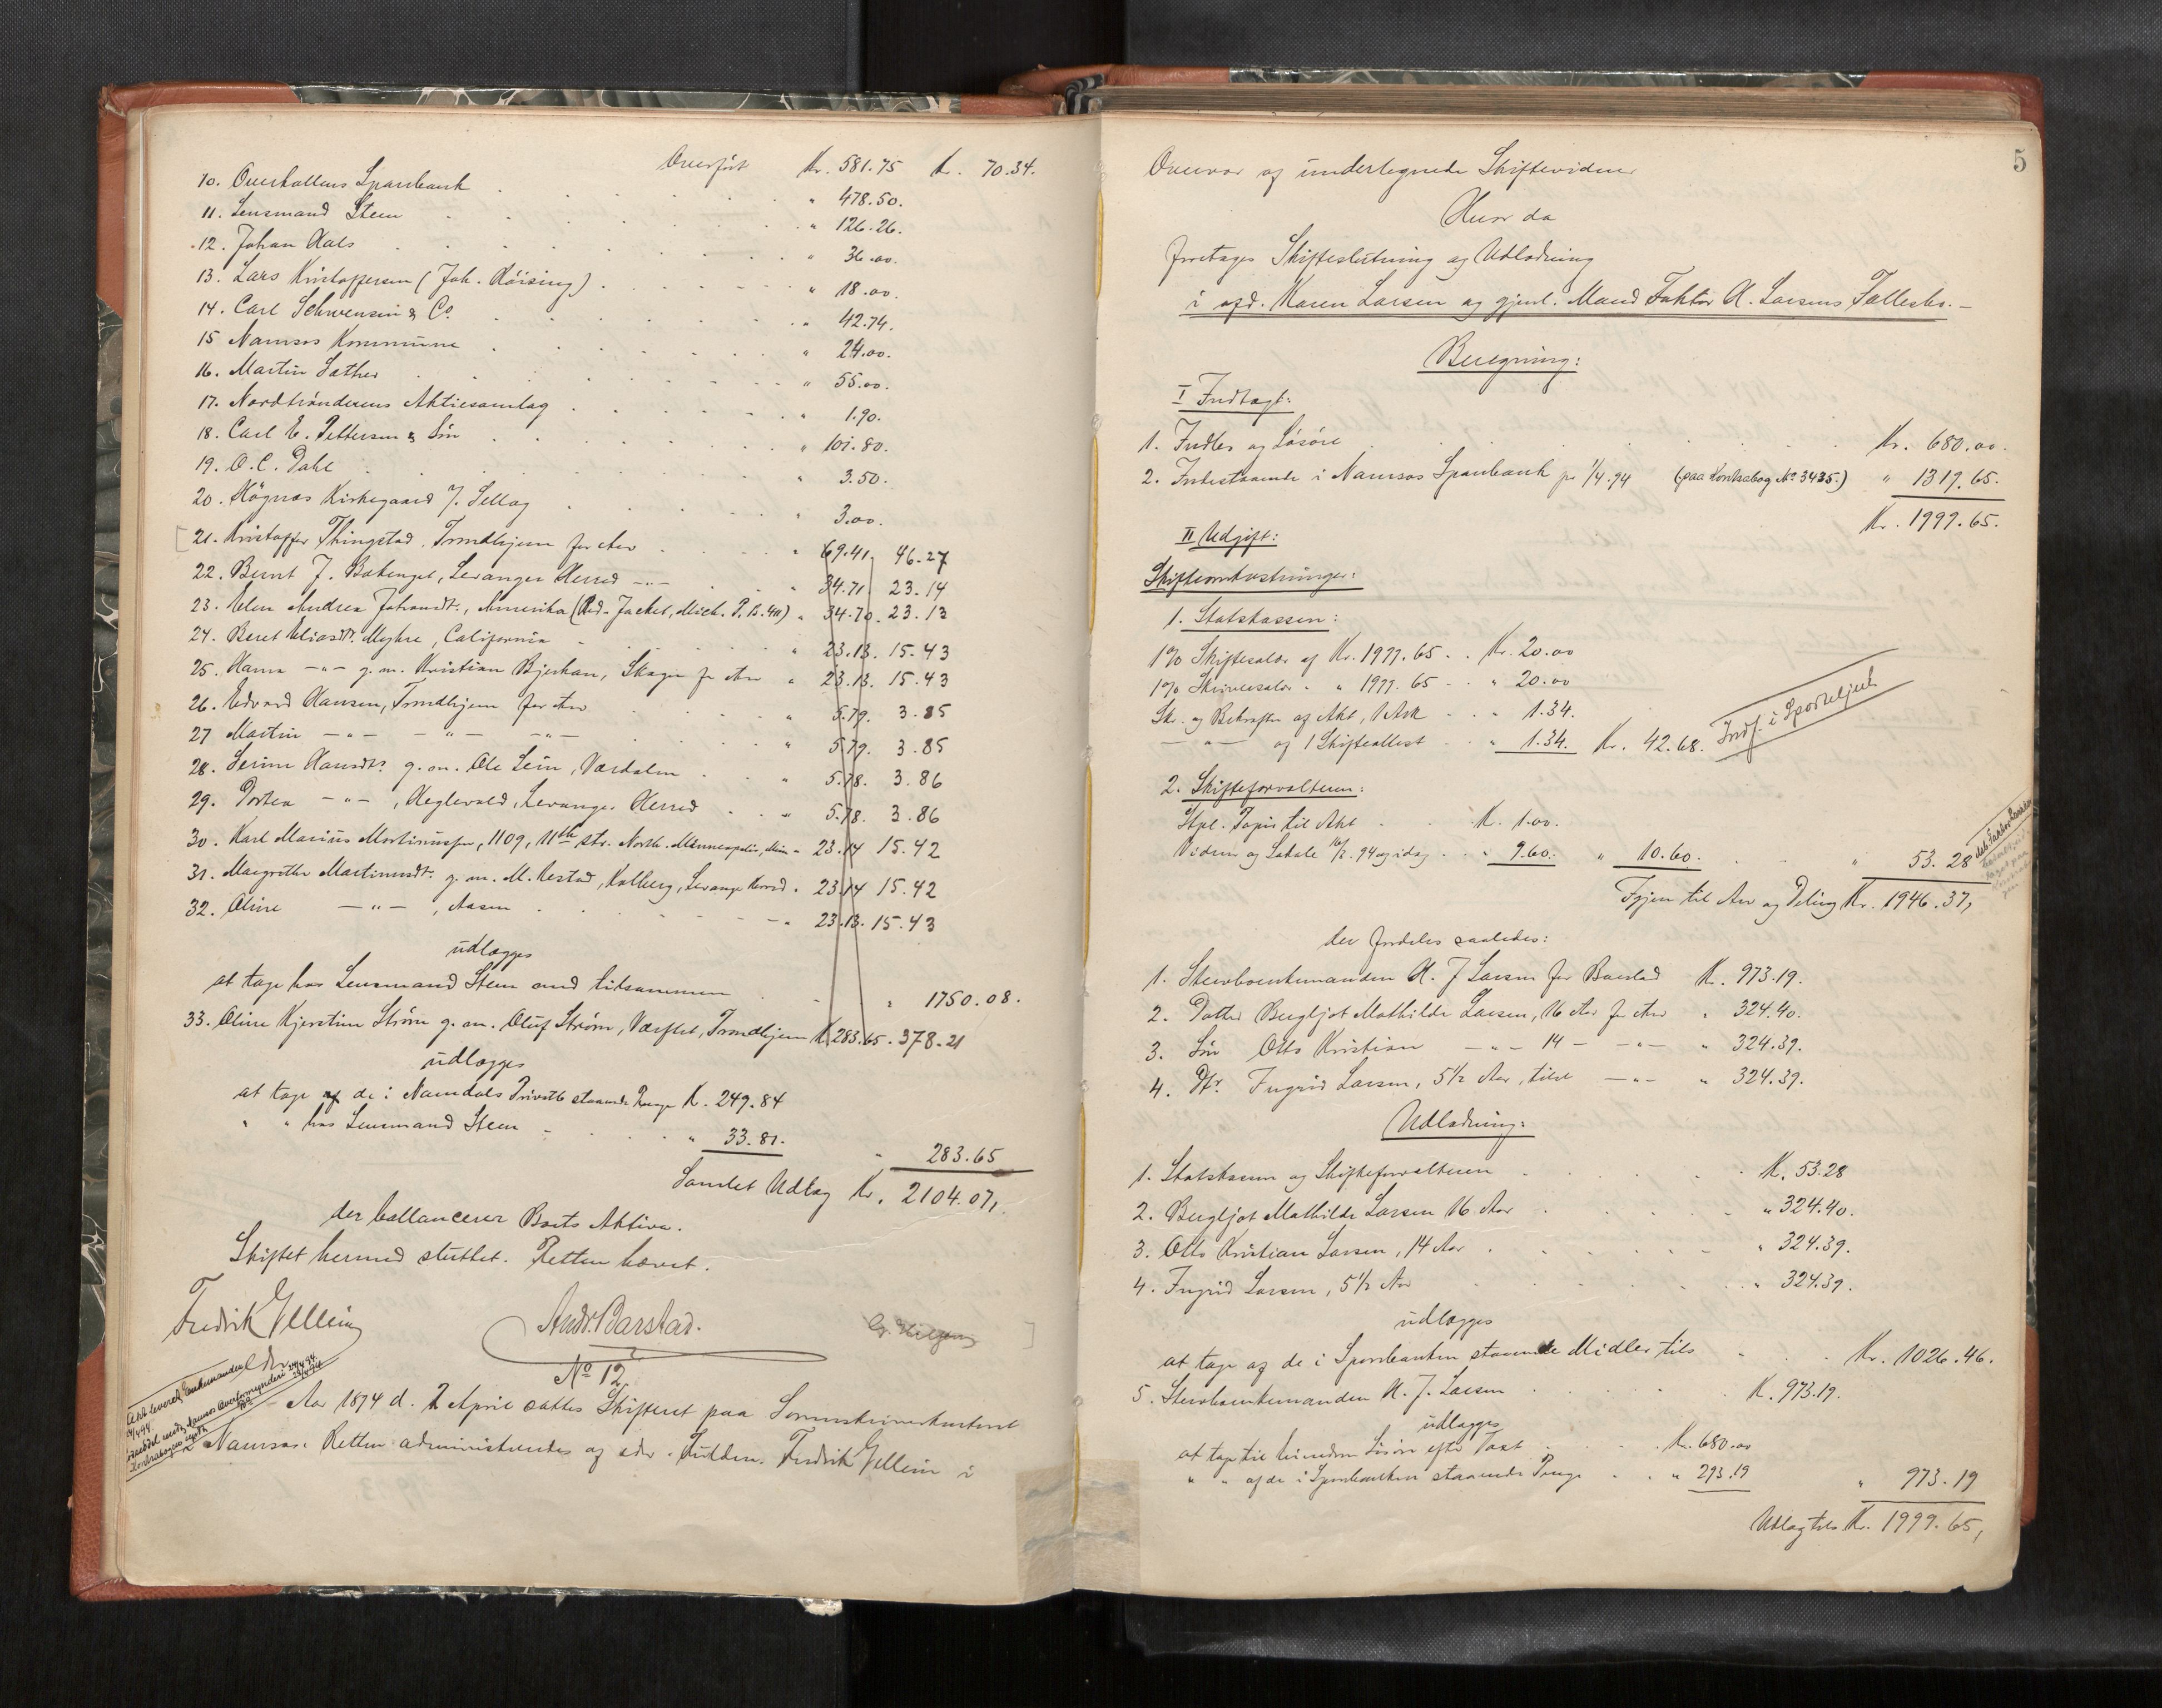 Overført Kr. 581.75 Kr. 70.34.
10. Overhallens Sparebank " 478.50.
11. Lensmand Stene " 126.26.
12. Johan Hals " 36.00.
13. Lars Kristoffersen (Joh. Høising) " 18.00.
14. Carl Schwensen & Co. " 42.74.
15 Namsos Kommune " 24.00.
16. Martin Sæther " 55.00.
17. Nordtrønderens Aktiesamlag " 1.90.
18. Carl E. Pettersen & Søn " 101.80.
19. O. C. Dahl " 3.50.
20. Høgnæs Kirkegaard J. Sellæg " 3.00.
21. Kristoffer Thingstad, Trondhjem for Arv " 69.41. 46.27
22. Bernt J. Levanger Herred -"- " 34.71 23.14
23. Elen Andrea Johansdtr., Amerika (Red-Jacket, Mich. P. B. 411) " 34.70. 23.13
24. Beret Eliasdtr. Myhre, California " 23.13. 15.43
25. Hanna -"- g. m. Kristian Bjerkan, Skogn for Arv " 23.13. 15.43
26. Edvard Hansen, Trondhjem for Arv " 5.79. 3.85
27 Martin -"- -"- -"- " 5.79. 3.85
28. Serine Hansdtr. g. m. Ole Sein, Værdalen " 5.78. 3.86
29. Dortea -"-, Heglevold, Levanger Herred " 5.78. 3.86
30. Karl Marius Martinussen, 1109, 11th Str. North. Minneapolis, Min " 23.14 15.42
31. Margrethe Martinusdtr. g. m. M. Nestad, Kolberg, Levanger Herred " 23.14 15.42
32. Oline -"-, Aasen " 23.13. 15.43
udlægges
at tage hos Lensmand Stene med tilsammen " 1750.08.
33. Oline Kjerstine Strøm g. m. Oluf Strøm, Værftet, Trondhjem K 283.65. 378.21
udlægges
at tage af de i Namdals Privatb staaende Penge K. 249.84
" " hos Lensmand Stene " 33.81. " 283.65
Samlet Udlæg Kr. 2104.07,
der ballancerer Boets Aktiva.
Skiftet hermed sluttet. Retten hævet.
Fredrik Gellein Andr. Barstad.
No 12
Aar 1894 d. 2 April sattes Skifteret paa Sorenskriverkontoret
i Namsos. Retten administreredes af edsv. Fuldm. Fredrik Gellein i
5
Overvær af undertegnede Skiftevidner
Hvor da
foretages Skifteslutning og Udlodning
i afd. Karen Larsen og gjenl. Mand Faktor H. Larsens Fællesbo. -
Beregning:
I Indtægt:
1. Indbo og Løsøre Kr. 680.00.
2. Indestaaende i Namsos Sparebank pr 1/4.94 (paa Kontrabog No 3435.) " 1319.65.
Kr. 1999.65.
II Udgift:
Skifteomkostninger:
1. Statskassen:
1% Skiftesalær af Kr. 1999.65 Kr. 20.00
1% Skriversalær " " 1999.65 " 20.00
Sk. og Bekræftn af Akt, 1 Ark " 1.34.
-"- af 1 Skifteattest " 1.34. Kr. 42.68. Indf. i Sporteljnl.
2. Skifteforvalteren:
Stpl. Papir til Akt K. 1.00.
Vidner og Lokale 16/2.94 og idag " 9.60. " 10.60. " 53.28
Igjen til Arv og Deling Kr. 1946.37,
der fordeles saaledes:
1. Stervboenkemanden H. J Larsen for Boeslod K. 973.19.
2. Datter Bergljot Mathilde Larsen, 16 Aar for Arv " 324.40.
3. Søn Otto Kristian -"- 14 - -"- " 324.39.
4. Dtr. Ingrid Larsen, 5 1/2 Aar, -"- " 324.39.
Udlodning:
1. Statskassen og Skifteforvalteren K. 53.28
2. Bergljot Mathilde Larsen 16 Aar " 324.40.
3. Otto Kristian Larsen, 14 Aar " 324.39.
4. Ingrid Larsen, 5 1/2 Aar " 324.39.
udlægges
at tage af de i Sparebanken staaende Midler tils Kr. 1026.46.
5. Stervboenkemanden H. J. Larsen K. 973.19.
udlægges
at tage til Eiendom Løsøre efter Taxt Kr. 680.00
" " af de i Sparebanken staaende Penge " 293.19 " 973.19
Udlæg tils Kr. 1999.65,